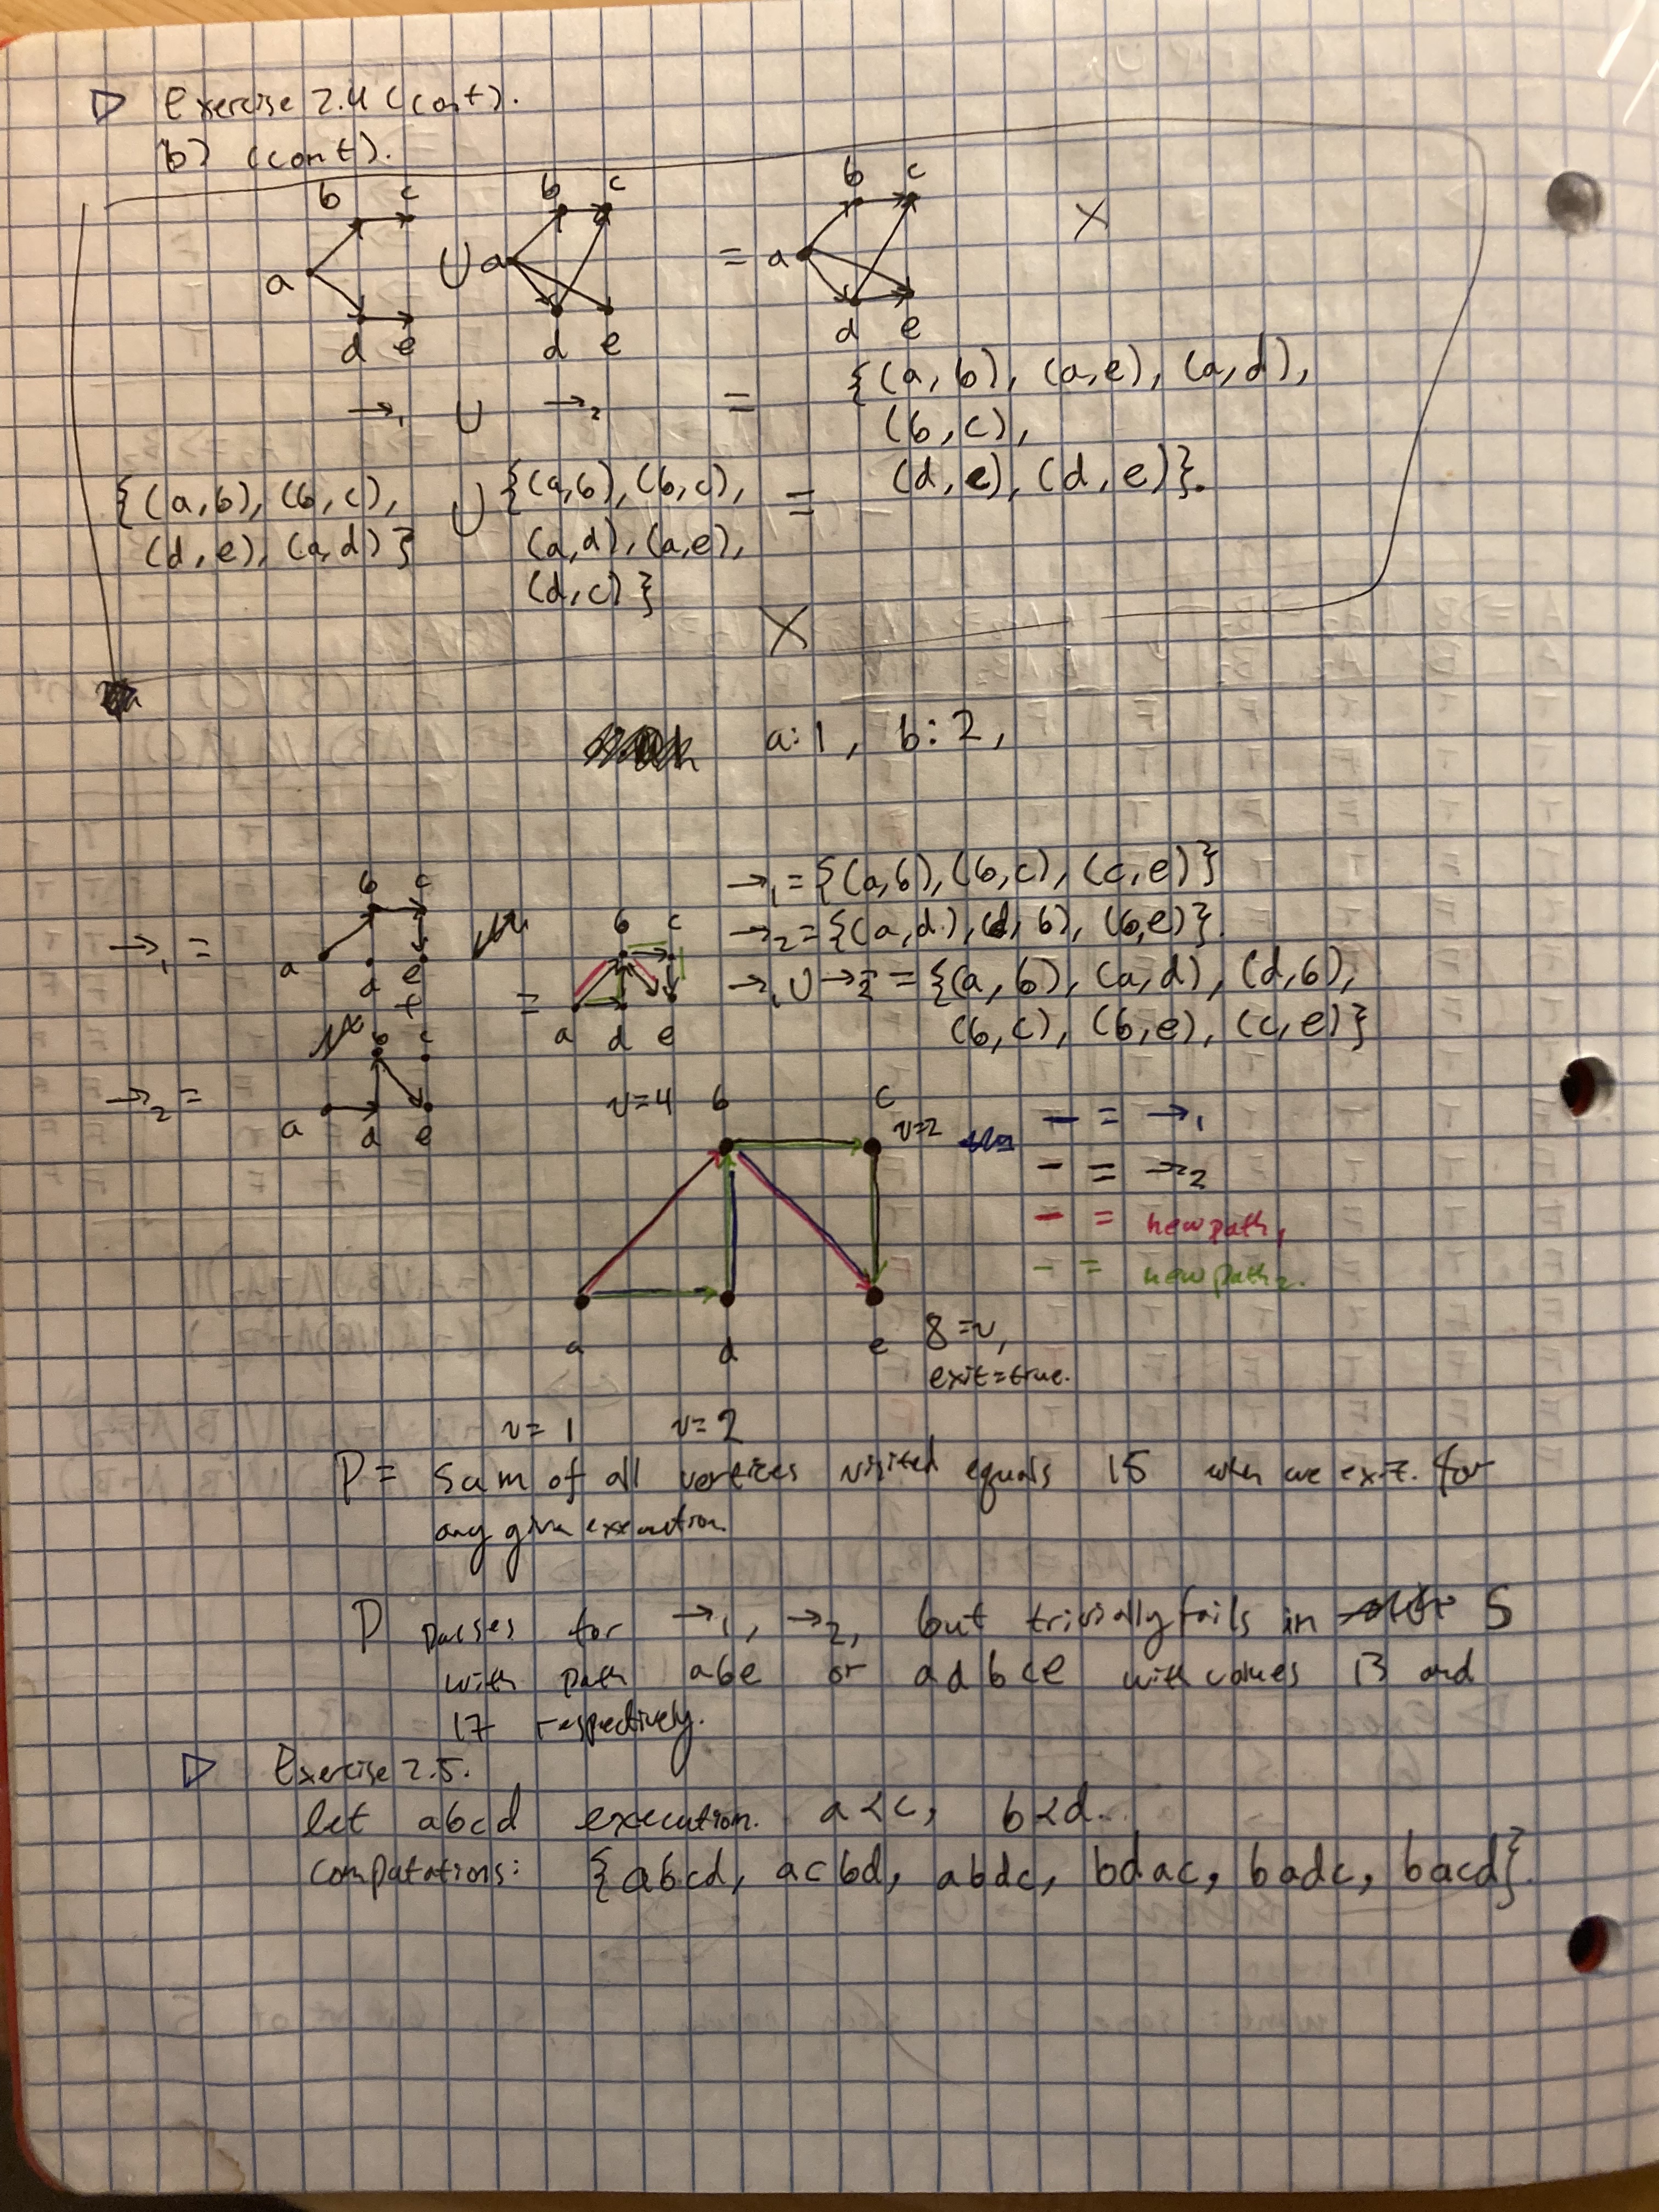 ▷ Exercise 2.4 (cont).
b) (cont).
b c b c b c
a ∪ a = a X
d e d e d e
→₁ ∪ →₂ = {(a,b), (a,e), (a,d),
(b,c),
(d,e), (d,e)}.
{(a,b), (b,c), ∪ {(a,b), (b,c), =
(d,e), (a,d)} (a,d), (a,e),
(d,c)}
X
a:1, b:2,
→₁ = b c a d e
+
→₂ = b c a d e
= b c a d e
→₁ = {(a,b), (b,c), (c,e)}
→₂ = {(a,d), (d,b), (b,e)}.
→₁ ∪ →₂ = {(a,b), (a,d), (d,b),
(b,c), (b,e), (c,e)}
v=4 b c v=2
- = →₁
- = →₂
- = new path₁
- = new path₂.
a d e 8=v,
exit=true.
v=1 v=2
P = sum of all vertices visited equals 15 when we exit. for
any given execution
P passes for →₁, →₂, but trivially fails in S
with path abe or adbce with values 13 and
17 respectively.
▷ Exercise 2.5.
let abcd execution. a<c, b<d.
computations: {abcd, acbd, abdc, bdac, badc, bacd}.